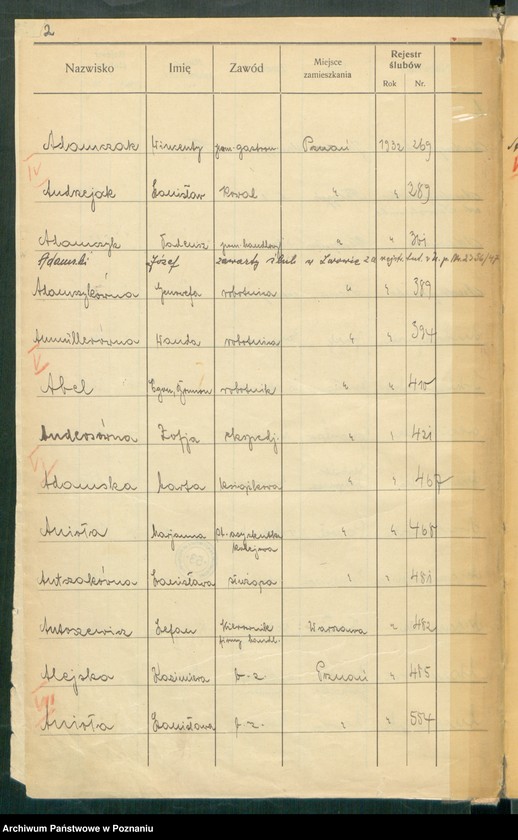 2
Nazwisko Imię Zawód Miejsce zamieszkania Rejestr ślubów Rok Nr.
Adamczak Wincenty pom. gastron. Poznań 1932 269
IV
Andrzejak Stanisław kowal " " 289
Adamczyk Tadeusz pom. handlowy " " 301
Adamski Józef zawarty ślub w Lwowie za
Adamczykówna Genowefa robotnica " " 389
Wanda robotnica " " 394
V
Abel Egon, robotnik " " 410
Andersówna Zofja ekspedj. " 421
VI
Adamska Marta książkowa " " 467
Anioła Marjanna " " 468
Antczakówna Stanisława służąca 481
Antoszewicz Stefan kierownik firmy handl. Warszawa " 482
Alejska Kazimiera b. z. Poznań " 485
VIII
Anioła Stanisława b. z. " " 554
Archiwum Państwowe w Poznaniu